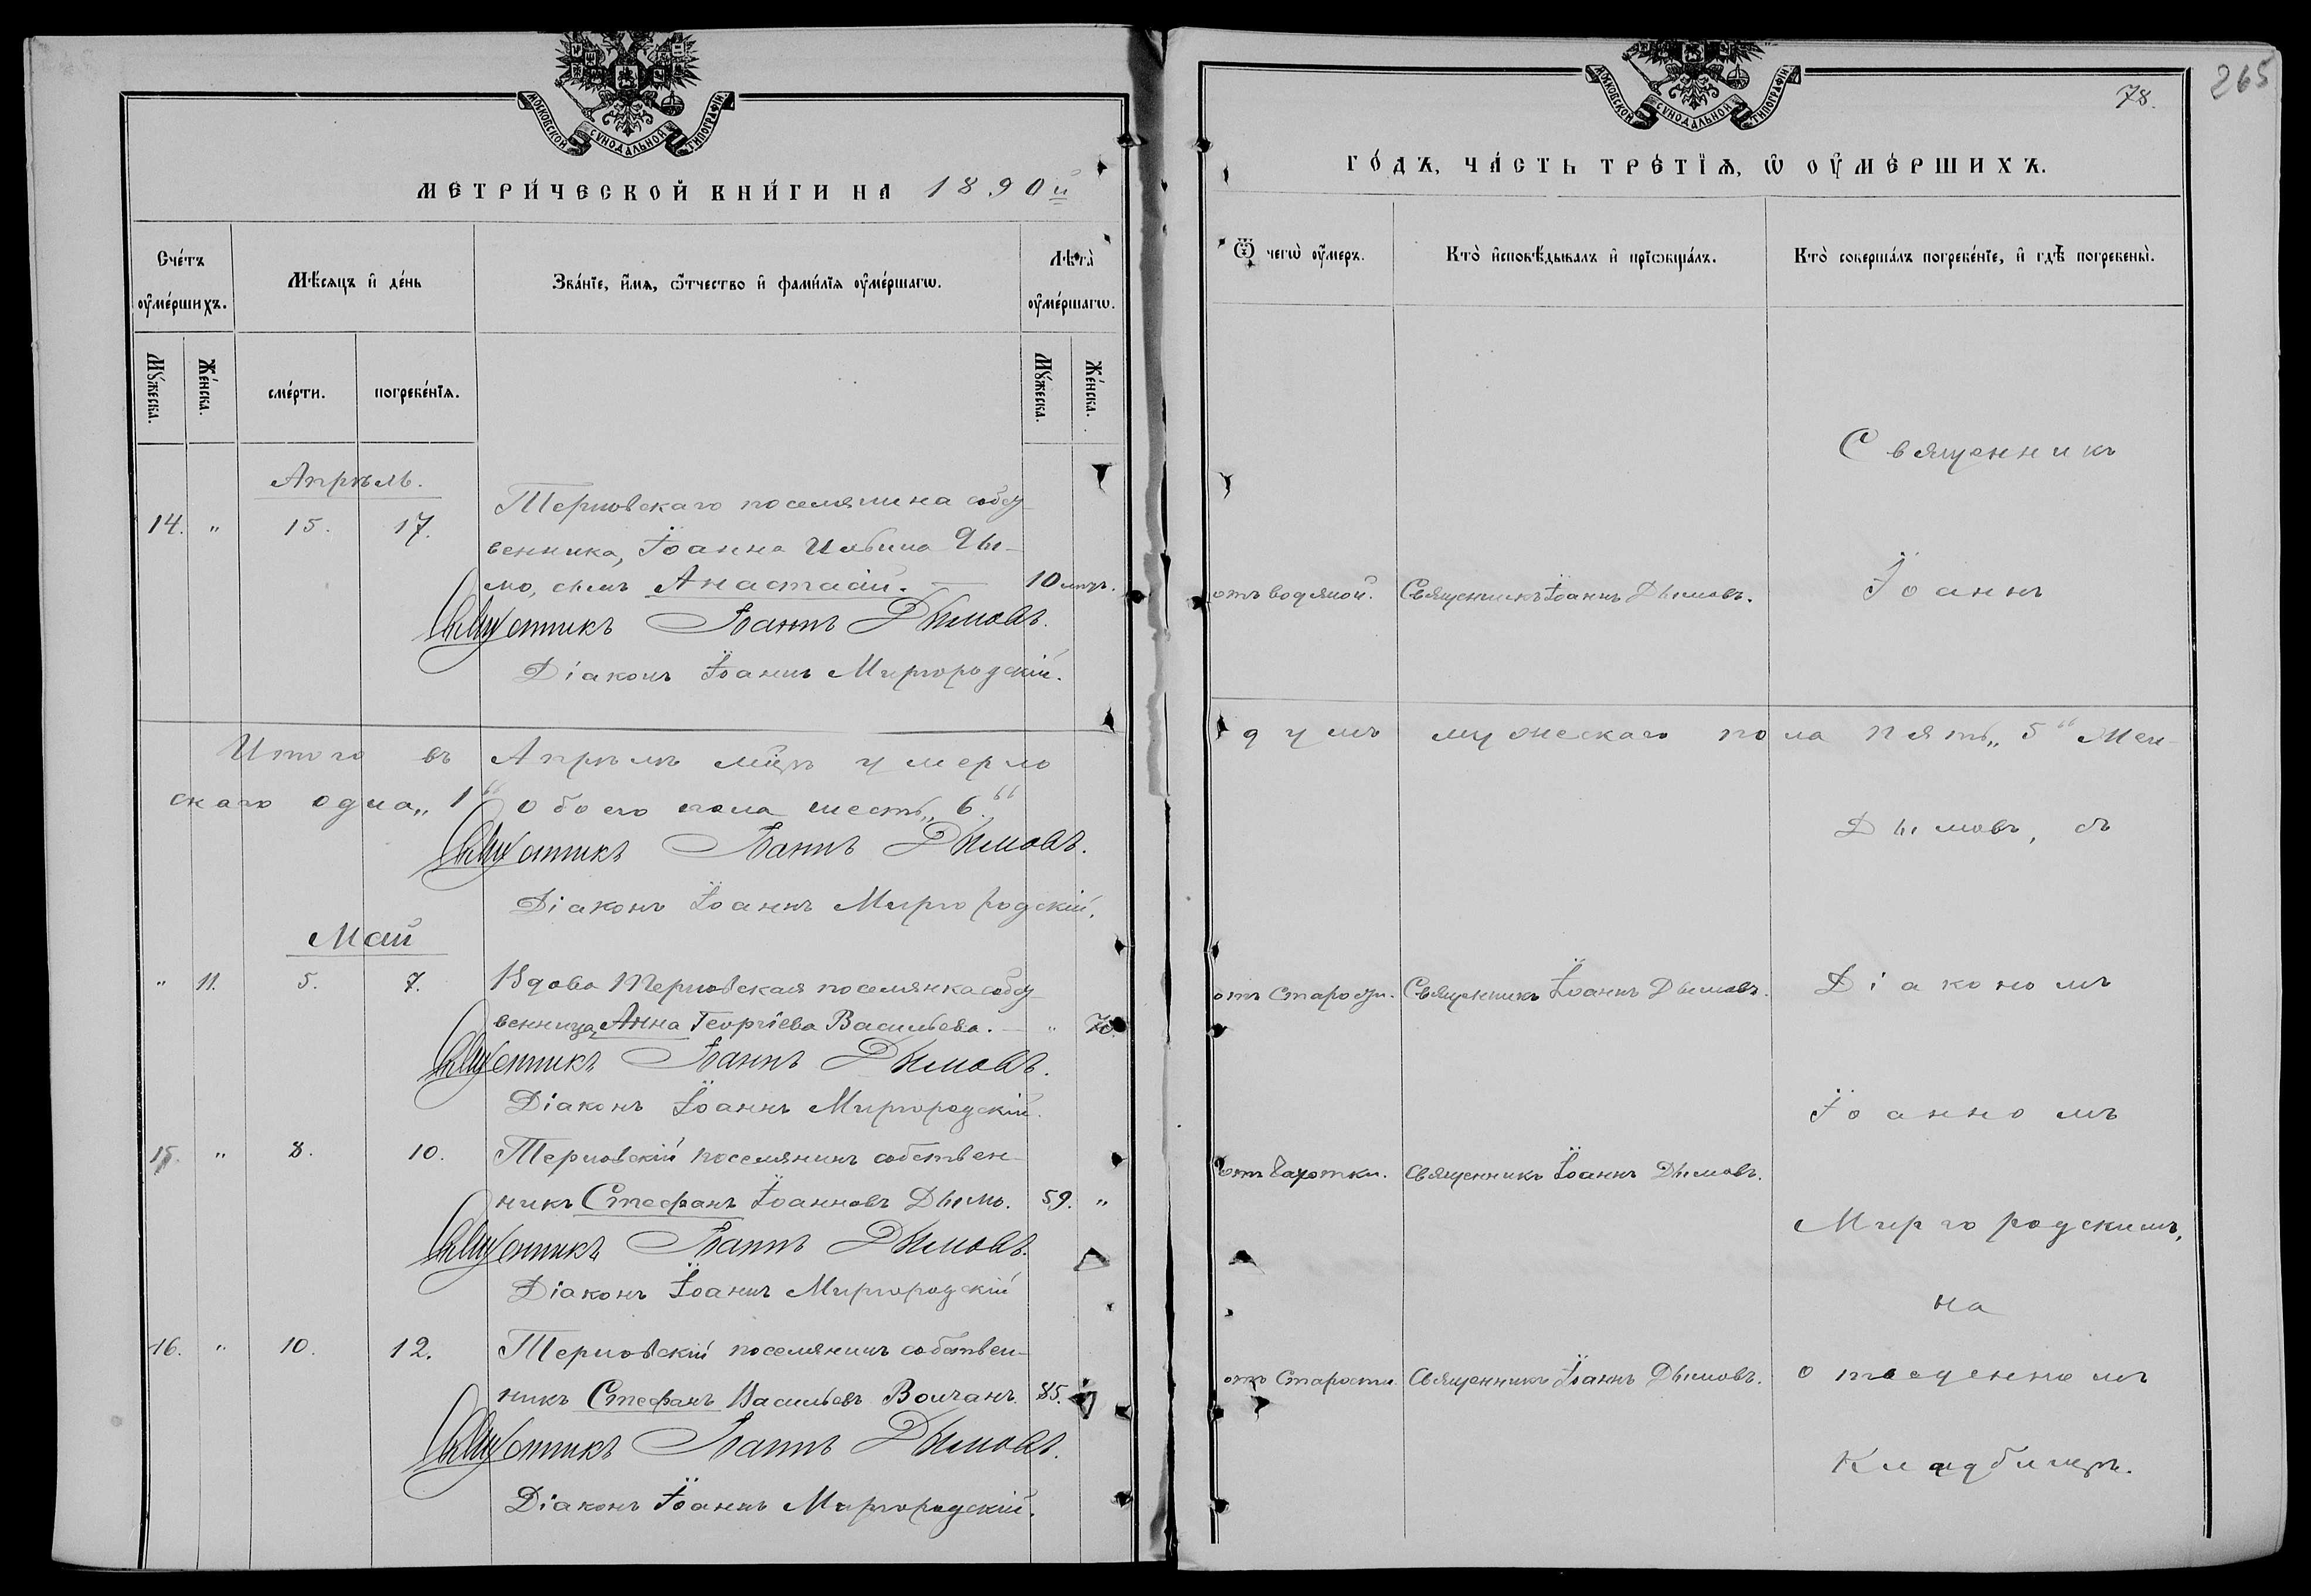 МОСКОВСКОЙ СѴНОДАЛЬНОЙ ТИПОГРАФІИ.
МЕТРИ́ЧЕСКОЙ КНИ́ГИ НА 1890й
Сче́тъ оу҆ме́ршихъ.
Мѣ́сяцъ и҆ де́нь
Зва́нїе, и҆́мѧ, ѻ҆́тчество и҆ фами́лїѧ оу҆ме́ршагѡ.
Лѣта̀ оу҆ме́ршагѡ.
Мꙋ́жеска.
Же́нска.
сме́рти.
погребе́нїѧ.
Мꙋ́жеска.
Же́нска.
Апрѣль.
14. " 15. 17.
Терновскаго поселянина собст
венника, Іоанна Ильина Ды-
мо, сынъ Анастасій. — 10 мцъ.
Священникъ Іоаннъ Дымовъ.
Діаконъ Іоаннъ Миргородскій.
Итого въ Апрѣлѣ мцѣ умерло
скаго одна „1“ обоего пола шесть „6“
Священникъ Іоаннъ Дымовъ.
Діаконъ Іоаннъ Миргородскій.
Май
" 11. 5. 7. Вдова Терновская поселянка собст
венница, Анна Георгіева Васильева. — " 70
Священникъ Іоаннъ Дымовъ.
Діаконъ Іоаннъ Миргородскій.
15. " 8. 10. Терновскій поселянинъ собствен-
никъ Стефанъ Іоанновъ Дымо. 59. "
Священникъ Іоаннъ Дымовъ.
Діаконъ Іоаннъ Миргородскій
16. " 10. 12. Терновскій поселянинъ собствен-
никъ Стефанъ Васильевъ Волчанъ. 85.
Священникъ Іоаннъ Дымовъ.
Діаконъ Іоаннъ Миргородскій.
265
78.
МОСКОВСКОЙ СѴНОДАЛЬНОЙ ТИПОГРАФІИ.
ГО́ДЪ, ЧА́СТЬ ТРЕ́ТЇѦ, Ѡ҆ ОУ҆МЕ́РШИХЪ.
Ѿ чегѡ̀ оу҆́меръ.
Кто̀ и҆сповѣ́дывалъ и҆ прїѡбща́лъ.
Кто̀ соверша́лъ погребе́нїе, и҆ гдѣ̀ погребены̀.
Священникъ
Іоаннъ
отъ водяной. Священникъ Іоаннъ Дымовъ.
душъ мужескаго пола пять „5“ Жен-
Дымовъ, съ
отъ старости. Священникъ Іоаннъ Дымовъ.
Діакономъ
Іоанномъ
отъ чахотки. Священникъ Іоаннъ Дымовъ.
Миргородскимъ,
на
отъ старости. Священникъ Іоаннъ Дымовъ.
отведенномъ
кладбищѣ.